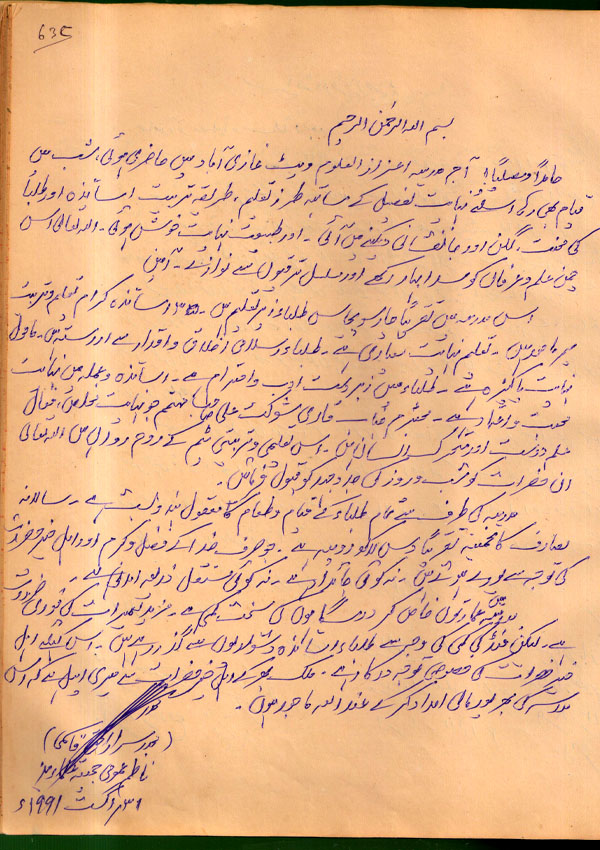 635
بسم اللہ الرحمن الرحیم
حامداً ومصلیاً! آج مدرسہ اعزاز العلوم ویٹ غازی آباد میں حاضری ہوئی، شب میں
قیام بھی رہا، اس لئے نہایت تفصیل کے ساتھ طرز تعلیم، طریقہ تربیت اساتذہ اور طلباء
کی محنت، لگن اور جانفشانی دیکھنے میں آئی۔ اور طبیعت نہایت خوش ہوئی۔ اللہ تعالیٰ اس
چمن علم و عرفانی کو سدا بہار رکھے اور مسلسل ترقیوں سے نوازے۔ آمین
اس مدرسہ میں تقریباً چار سو پچاس طلباء زیر تعلیم ہیں۔ ۳۵ اساتذہ کرام تعلیم و تربیت
میں ہیں۔ تعلیم نہایت معیاری ہے۔ طلباء اسلامی اخلاق و اقدار سے آراستہ ہیں۔ ماحول
نہایت پاکیزہ ہے۔ طلباء میں زبردست ادب و احترام ہے۔ اساتذہ و عملہ میں نہایت
محبت و اعتماد ہے۔ محترم جناب قاری شوکت علی صاحب مہتمم جو نہایت مخلص، فعال
علم دوست اور متحرک انسان ہیں۔ اس تعلیمی و تربیتی مہم کے روح رواں ہیں اللہ تعالیٰ
ان حضرات کو شب و روز کی جدوجہد کو قبول فرمائیں۔
مدرسہ کی طرف سے تمام طلباء کے قیام و طعام کا معقول بندوبست ہے۔ سالانہ
مصارف کا تخمینہ تقریباً دس لاکھ روپیہ ہے۔ جو صرف خدا کے فضل و کرم اور اہل خیر حضرات
کی توجہ سے پورے ہوتے ہیں۔ نہ کوئی جائداد ہے۔ نہ کوئی مستقل ذریعہ آمدنی ہے۔
مدرسہ میں عمارتوں خاص کر درسگاہوں کی سخت کمی ہے۔ مزید تعمیرات کی فوری ضرورت
ہے۔ لیکن فنڈ کی کمی کی وجہ سے طلباء اساتذہ دشواریوں سے گذر رہے ہیں۔ اس لئے اہل
خیر حضرات کی خصوصی توجہ درکار ہے۔ ملک بھر کے اہل خیر حضرات سے میری اپیل ہے کہ اس
مدرسہ کی بھرپور مالی امداد کر کے عند اللہ ماجور ہوں۔
قاسمی)
ناظم عمومی جمعیۃ علماء ہند
۳۱ اگست ۱۹۹۱ء